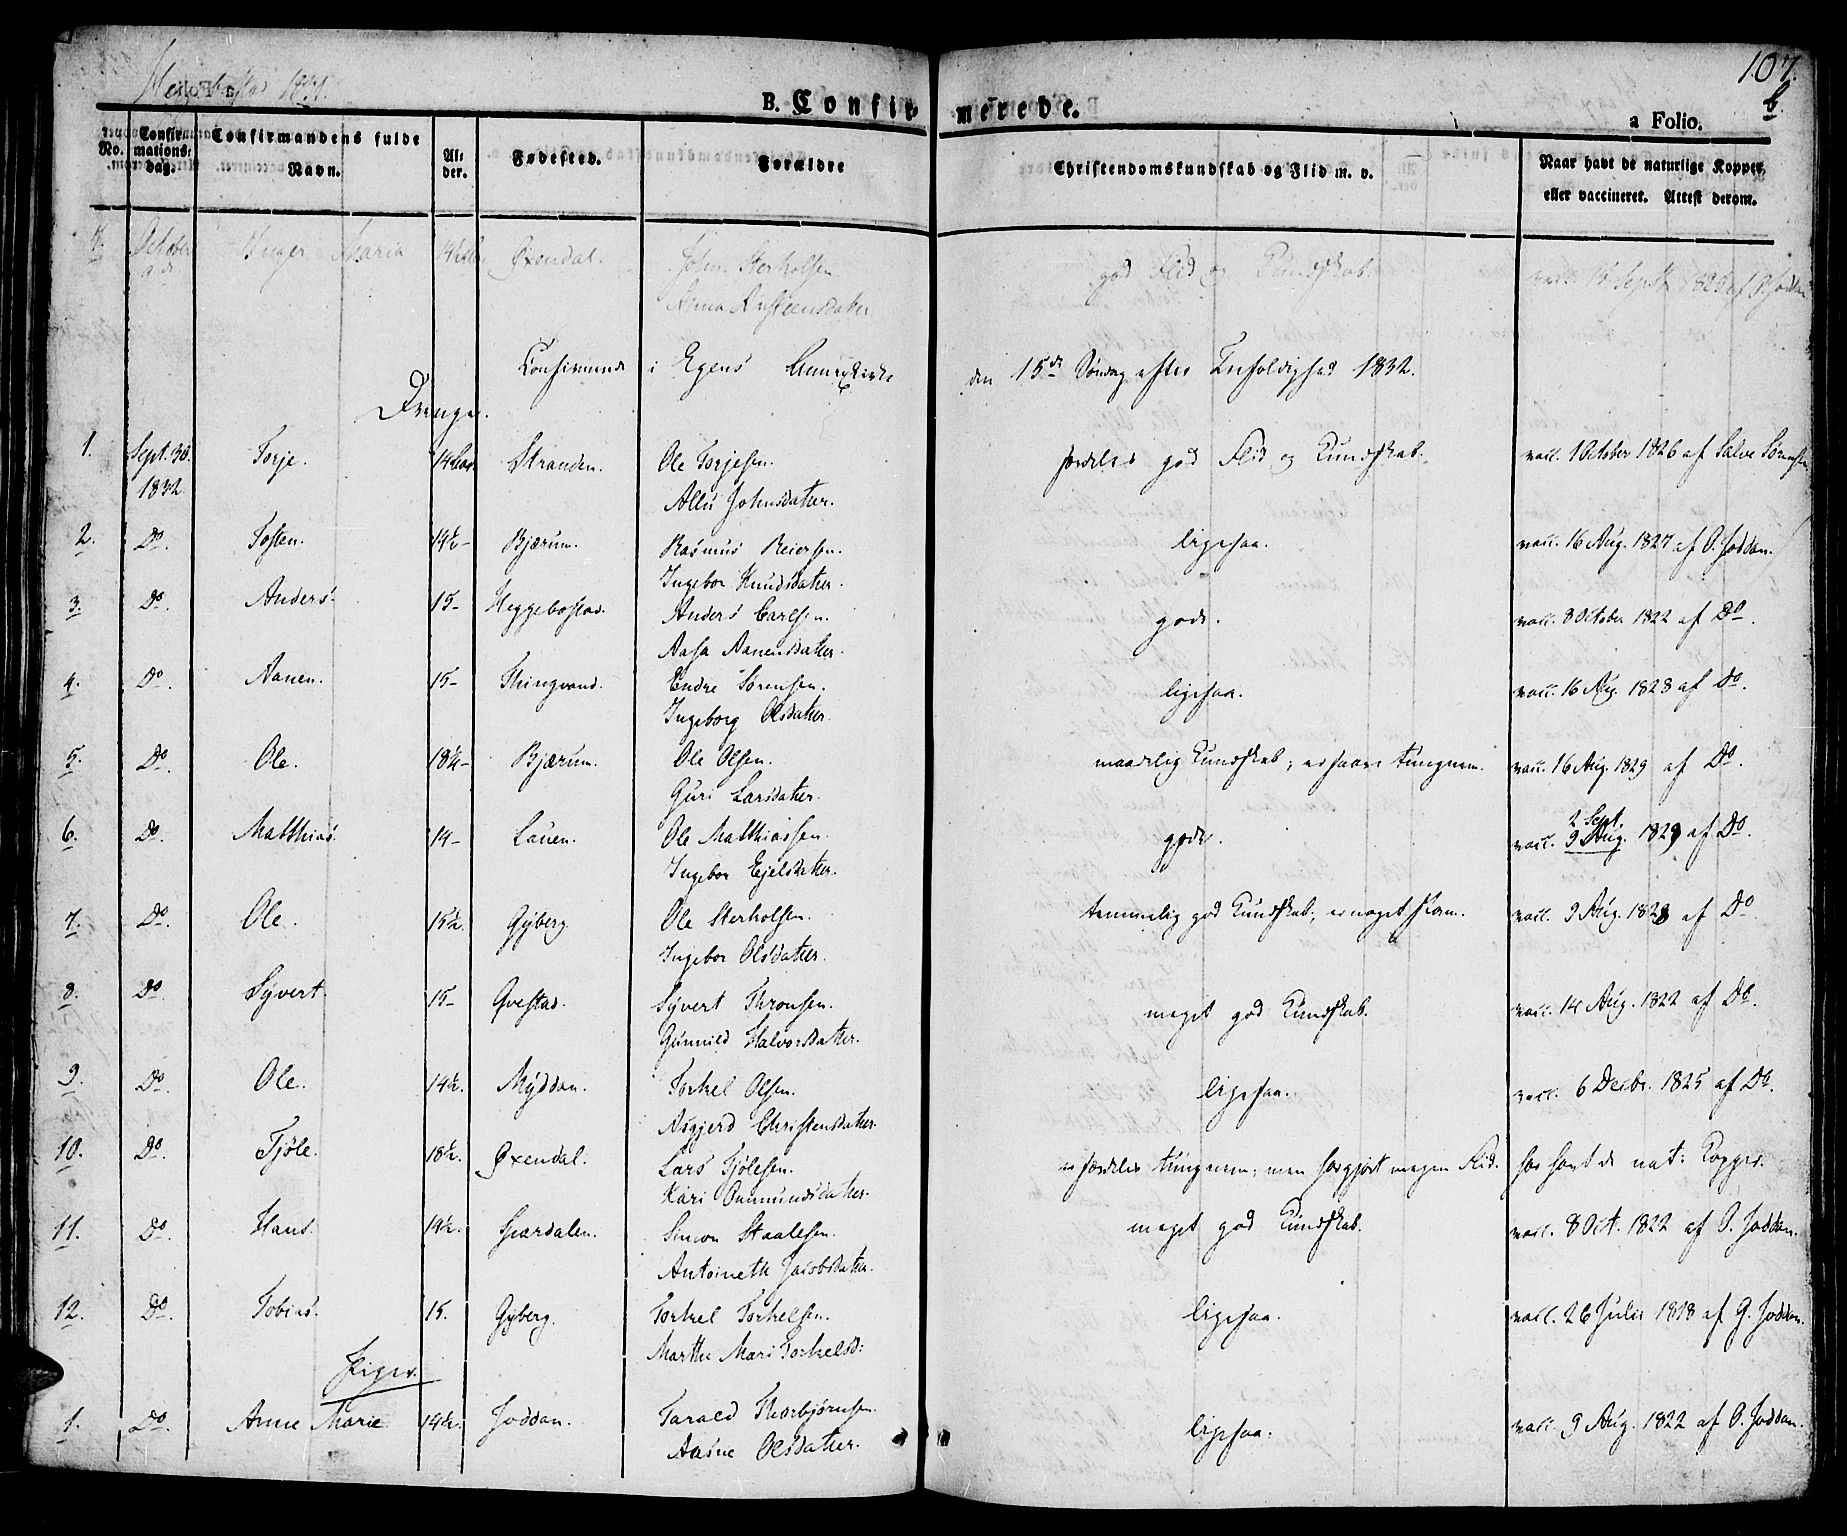 107.
b.
B. Confirmerede.
a Folio.
No. Confirmations: dag. Confirmandens fulde Navn. Alder. Fødested. Forældre Christendomskundskab og Flid m. v. Naar havt de naturlige Kopper, eller vaccineret. Attest derom.
4. October Inger Maria Øxendal. god Flid og Kundskab.
Anna
Confirmerede i Egens Annexkirke den 15de Søndag efter Trefoldighed 1832.
Drenge.
1. Sept. 30. Torje. 14 Stranden. Ole Torjesen. særdeles god Flid og Kundskab. vacc. 1 October 1826 af Salve Sørensen
1832 Johnsdatter.
2. Do. Tosten. 14½ – Bjærum. Rasmus Reiersen. ligesaa. vacc. 16 Aug. 1827 af O. Joddan.
Ingebor Knudsdatter.
3. Do. Anders. 15 – Heggebostad. Anders Carlsen. gode. vacc. 8 October 1822 af Do.
Aasa Aanensdatter.
4. Do. Aanen. 15 – Thingvand. Endre Sørensen. ligesaa. vacc. 16 Aug. 1828 af Do.
Ingeborg Olsdatter.
5. Do. Ole. 18¼ – Bjærum. Ole Olsen. maadelig Kundskab; er tungnem. vacc. 16 Aug. 1829 af Do.
Guri Larsdatter.
6. Do. Matthias. 14 – Lauen. Ole Matthiassen. gode. 2 Sept.
vacc. 9 Aug. 1829 af Do.
Ingebor Ejelsdatter.
7. Do. Ole. 15½. Gyberg. Ole Sterkolsen. temmelig god Kundskab; er noget sløv. vacc. 9 Aug. 1828 af Do.
Ingebor Olsdatter.
8. Do. Syvert. 15 – Qvestad. Syvert Thronsen. meget god Kundskab. vacc. 14 Aug. 1822 af Do.
Gunnild Halvorsdatter.
9. Do. Ole. 14½. Myddan. Torkel Olsen. ligesaa. vacc. 6 Decbr. 1825 af Do.
Asgjerd Christensdatter.
10. Do. Tjøle. 18½. Øxendal. Lars Tjølesen. er særdeles tungnem; men har gjort megen Flid. har havt de nat: Kopper.
Kari Omundsdatter.
11. Do. Hans. 14½. Gjærdalen. Simon Staalesen. meget god Kundskab. vacc. 8 Oct. 1822 af O. Joddan.
Antoineth Jacobsdatter.
12. Do. Tobias. 15. Gyberg. Torkel Torkelsen. ligesaa. vacc. 26 Julii 1818 af G. Joddan.
Marthe Mari Torkelsd:
Piger.
1. Do. Anne Marie 14½. Joddan. Tarald Thorbjørnsen. ligesaa. vacc. 9 Aug. 1822 af O. Joddan.
Aasne Olsdatter.